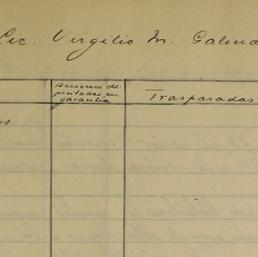 Lic. Virgilio M. Galind
Acciones de-
positadas en
garantía
Traspasadas
os